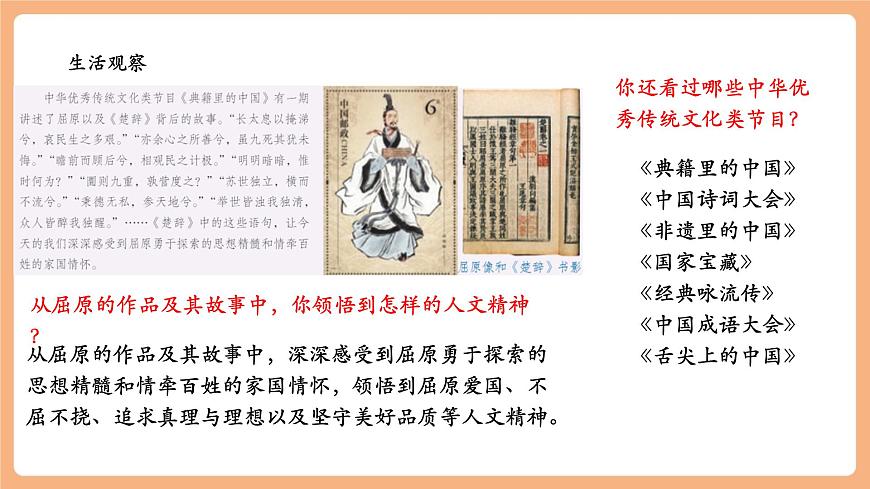 生活观察
中华优秀传统文化类节目《典籍里的中国》有一期
讲述了屈原以及《楚辞》背后的故事。“长太息以掩涕
兮，哀民生之多艰。”“亦余心之所善兮，虽九死其犹未
悔。”“瞻前而顾后兮，相观民之计极。”“明明暗暗，惟
时何为？”“圜则九重，孰营度之？”“苏世独立，横而
不流兮。”“秉德无私，参天地兮。”“举世皆浊我独清，
众人皆醉我独醒。”……《楚辞》中的这些语句，让今
天的我们深深感受到屈原勇于探索的思想精髓和情牵百
姓的家国情怀。
中国邮政
CHINA
6
屈原像和《楚辞》书影
从屈原的作品及其故事中，你领悟到怎样的人文精神
？
从屈原的作品及其故事中，深深感受到屈原勇于探索的
思想精髓和情牵百姓的家国情怀，领悟到屈原爱国、不
屈不挠、追求真理与理想以及坚守美好品质等人文精神。
你还看过哪些中华优
秀传统文化类节目？
《典籍里的中国》
《中国诗词大会》
《非遗里的中国》
《国家宝藏》
《经典咏流传》
《中国成语大会》
《舌尖上的中国》